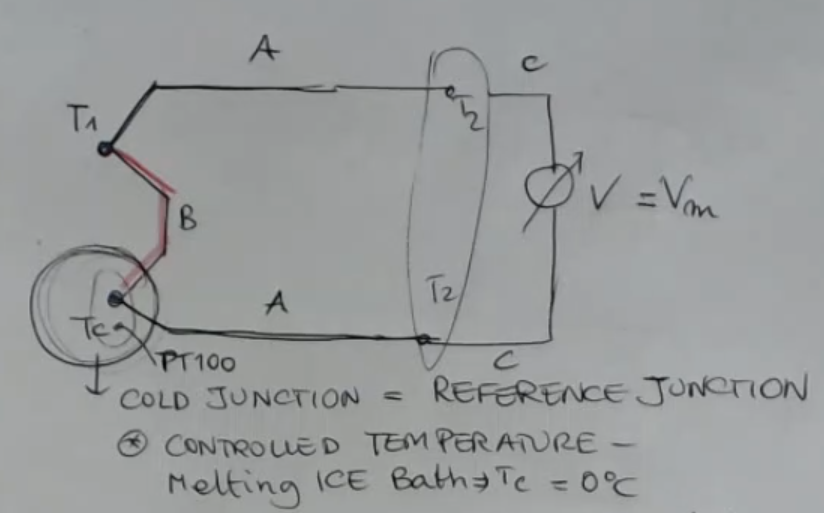 A
C
T1
T2
B
V = Vm
T2
A
Tc
PT100
C
COLD JUNCTION = REFERENCE JUNCTION
⊛ CONTROLLED TEMPERATURE -
Melting ICE Bath ⇒ Tc = 0°C